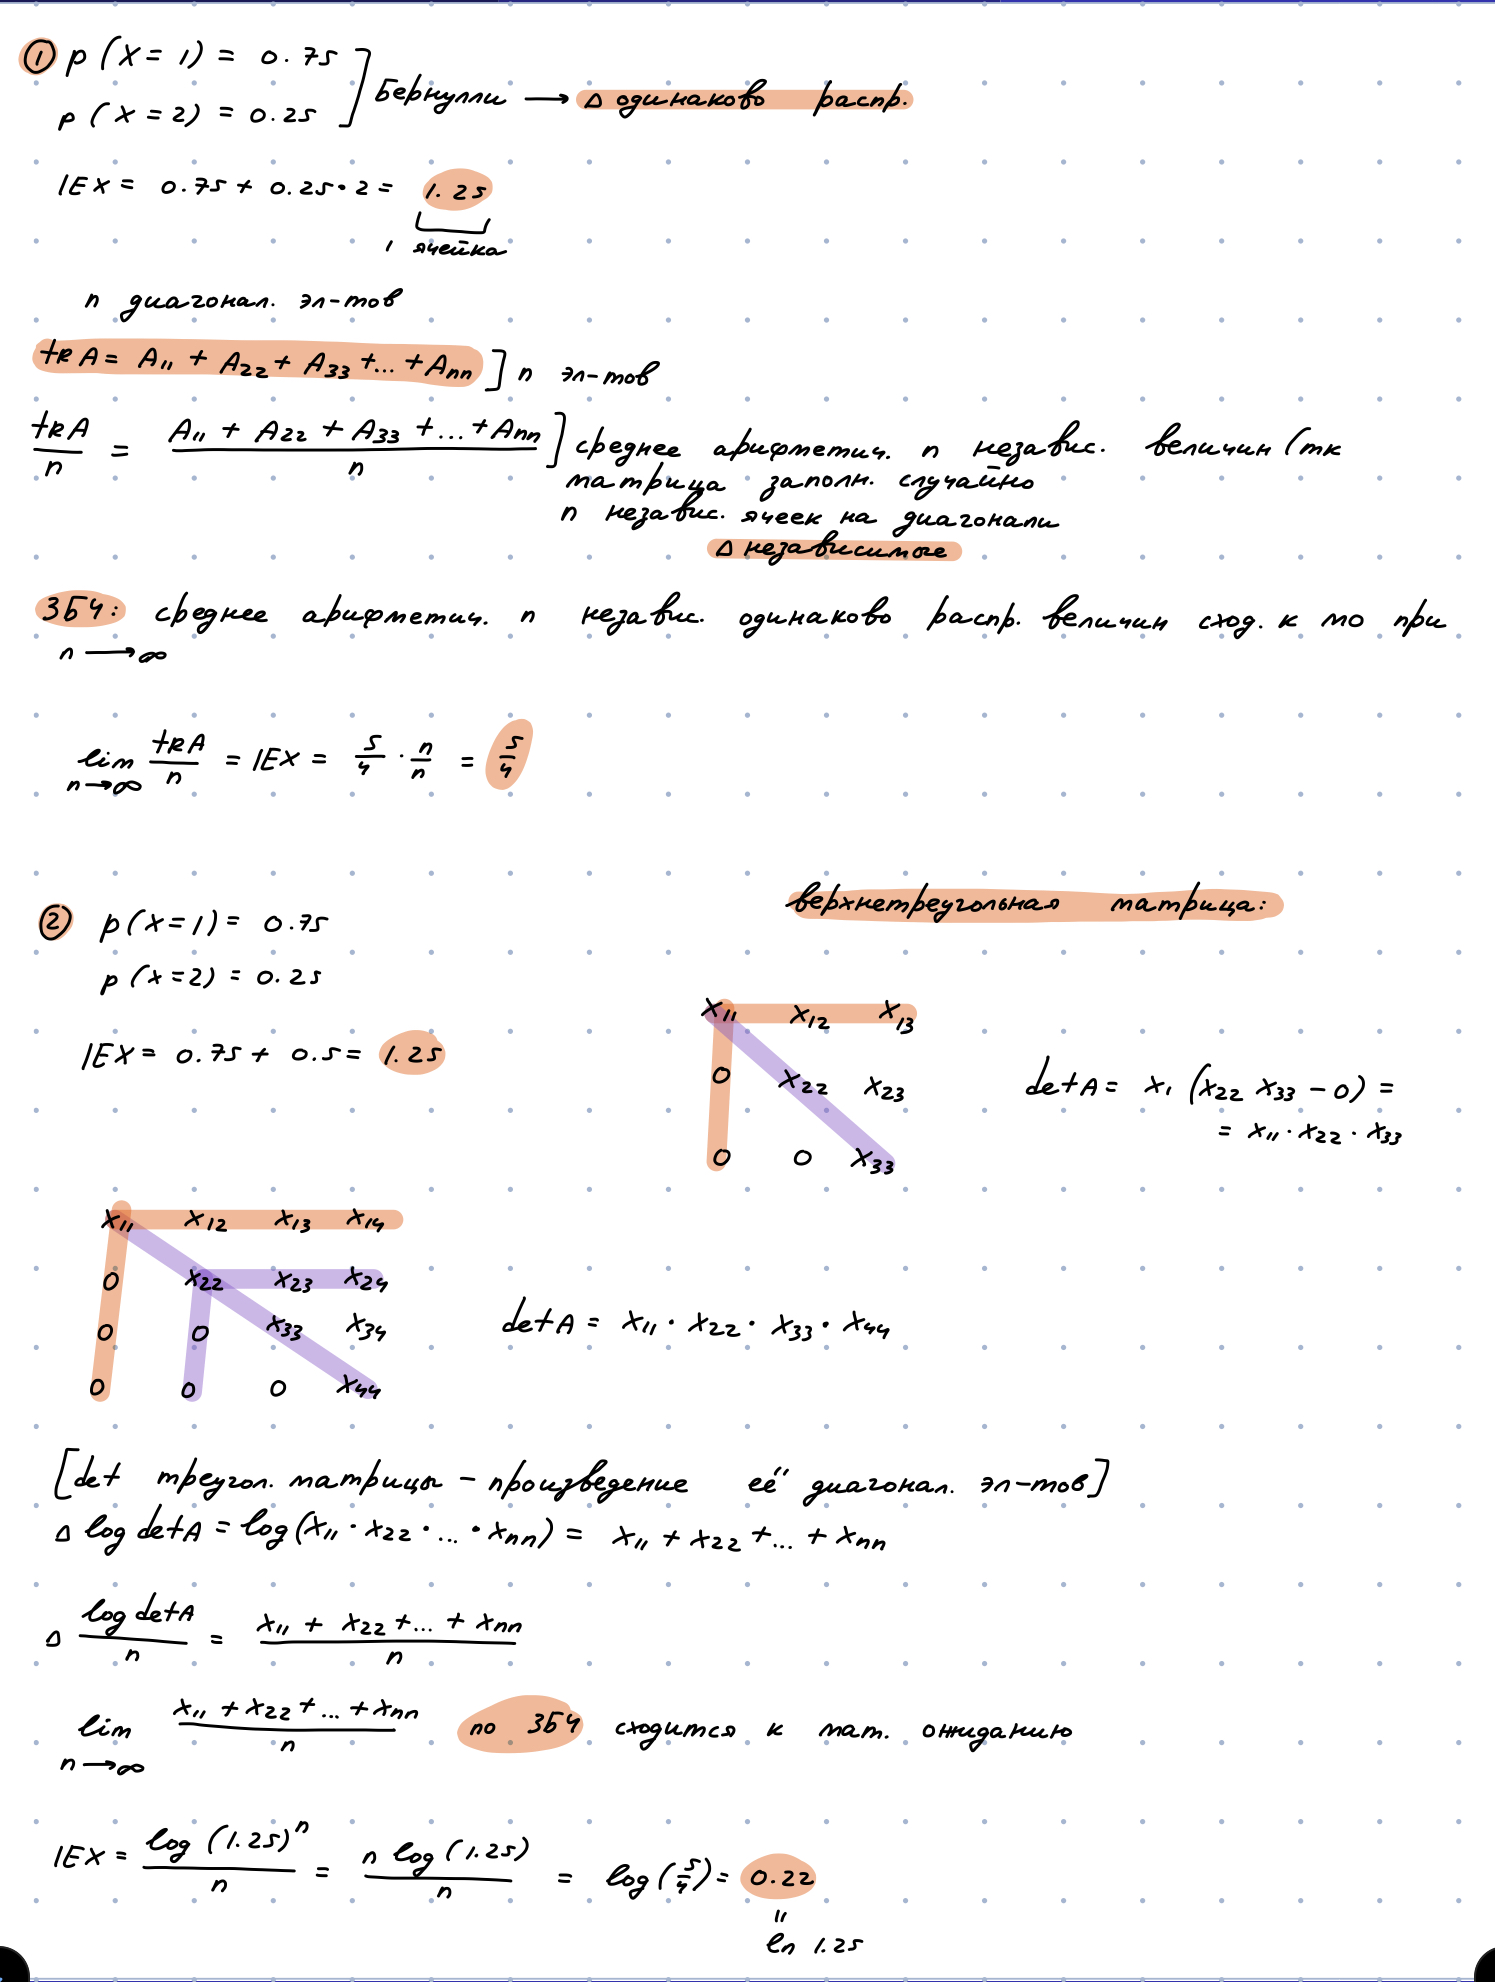 ① p (X = 1) = 0.75
p (X = 2) = 0.25
Бернулли → ∆ одинаково распр.
IEX = 0.75 + 0.25 · 2 = 1.25
1 ячейка
n диагонал. эл-тов
tRA = A₁₁ + A₂₂ + A₃₃ + ... + Aₙₙ ] n эл-тов
tRA/n = (A₁₁ + A₂₂ + A₃₃ + ... + Aₙₙ)/n ] среднее арифметич. n независ. величин (тк
матрица заполн. случайно
n независ. ячеек на диагонали
∆ независимые
ЗБЧ: среднее арифметич. n независ. одинаково распр. величин сход. к мо при
n → ∞
lim n→∞ tRA/n = IEX = 5/4 · n/n = 5/4
верхнетреугольная матрица:
② p (x = 1) = 0.75
p (x = 2) = 0.25
IEX = 0.75 + 0.5 = 1.25
x₁₁ x₁₂ x₁₃
0 x₂₂ x₂₃
0 0 x₃₃
detA = x₁ (x₂₂ x₃₃ - 0) =
= x₁₁ · x₂₂ · x₃₃
x₁₁ x₁₂ x₁₃ x₁₄
0 x₂₂ x₂₃ x₂₄
0 0 x₃₃ x₃₄
0 0 0 x₄₄
detA = x₁₁ · x₂₂ · x₃₃ · x₄₄
[det треугол. матрицы - произведение её диагонал. эл-тов]
∆ log detA = log(x₁₁ · x₂₂ · ... · xₙₙ) = x₁₁ + x₂₂ + ... + xₙₙ
∆ log detA/n = (x₁₁ + x₂₂ + ... + xₙₙ)/n
lim n→∞ (x₁₁ + x₂₂ + ... + xₙₙ)/n по ЗБЧ сходится к мат. ожиданию
IEX = log (1.25)ⁿ/n = n log (1.25)/n = log (5/4) = 0.22
"
ln 1.25